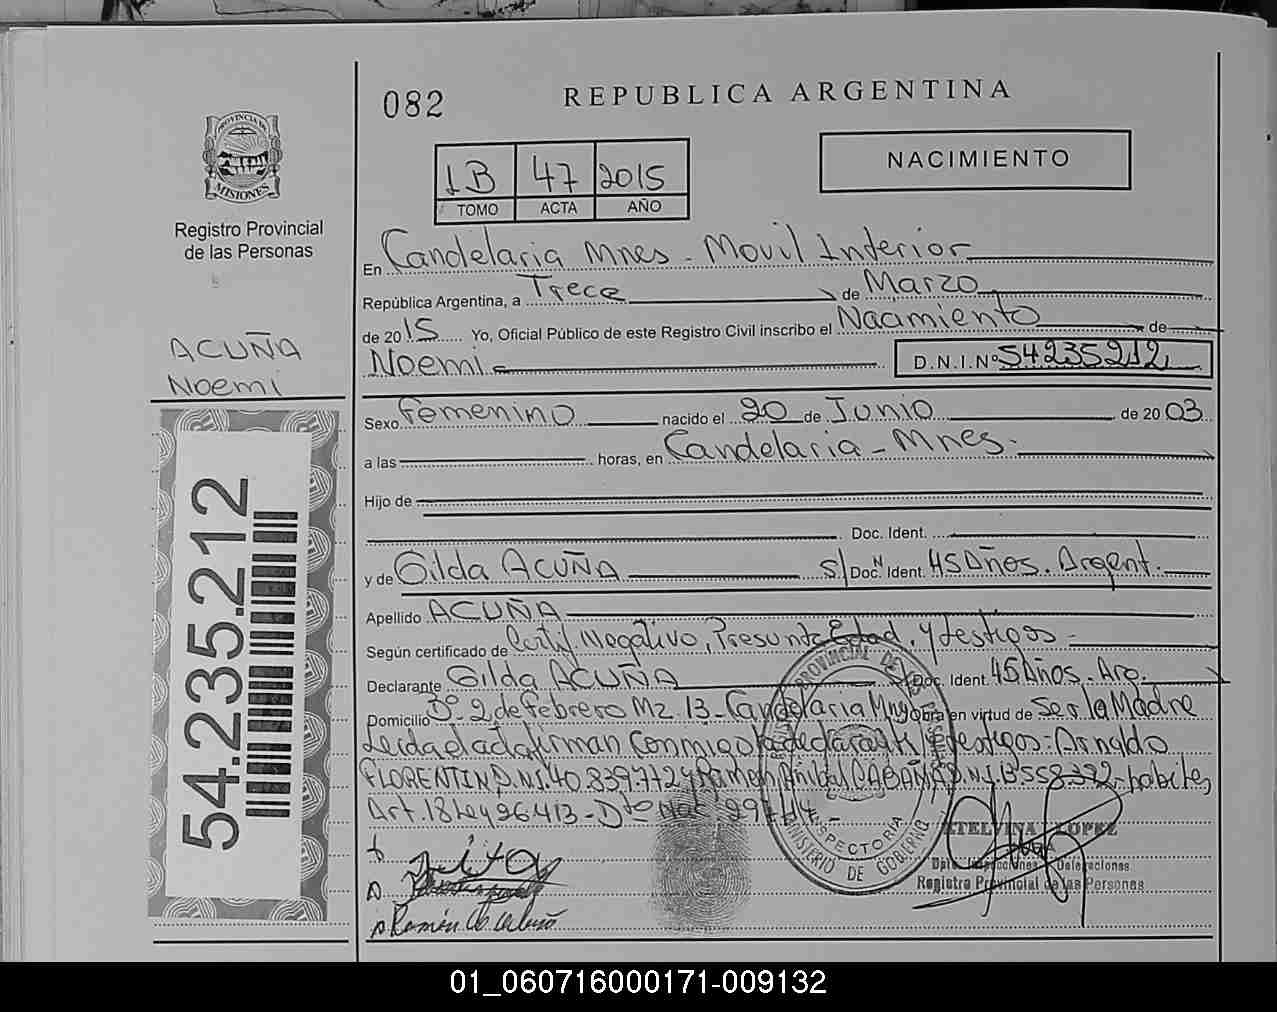 082
REPUBLICA ARGENTINA
PROVINCIA DE
MISIONES
Registro Provincial
de las Personas
1B 47 2015
TOMO ACTA AÑO
NACIMIENTO
En Candelaria Mnes - Movil Interior
República Argentina, a Trece de Marzo
de 2015 Yo, Oficial Público de este Registro Civil inscribo el Nacimiento de
Noemi D.N.I.Nº 54235212
ACUÑA
Noemi
Sexo Femenino nacido el 20 de Junio de 2003
a las horas, en Candelaria - Mnes.
Hijo de
Doc. Ident.
y de Gilda ACUÑA S/ Doc. N Ident. 45 Años. Argent.
Apellido ACUÑA
Según certificado de Certif. Negativo, Presunta Edad, y testigos -
Declarante Gilda ACUÑA S/ Doc. Ident. 45 Años. Arg.
Domicilio Bº 2 de Febrero Mz 13 - Candelaria Mnes Obra en virtud de Ser la Madre
Leida el acta firman Conmigo la declarante y testigos: Arnaldo
FLORENTIN D.N.I. 40.839.772 y Ramon Anibal CABAÑA D.N.I. 13558392 - habites,
Art. 18 Ley 26.413 - Dto Nac.
54.235.212
PROVINCIAL DE LAS
INSPECTORIA
MINISTERIO DE GOBIERNO
ETELVINA LOPEZ
Dpto. Inspecciones Delegaciones
Registro Provincial de las Personas
Ramón
01_060716000171-009132